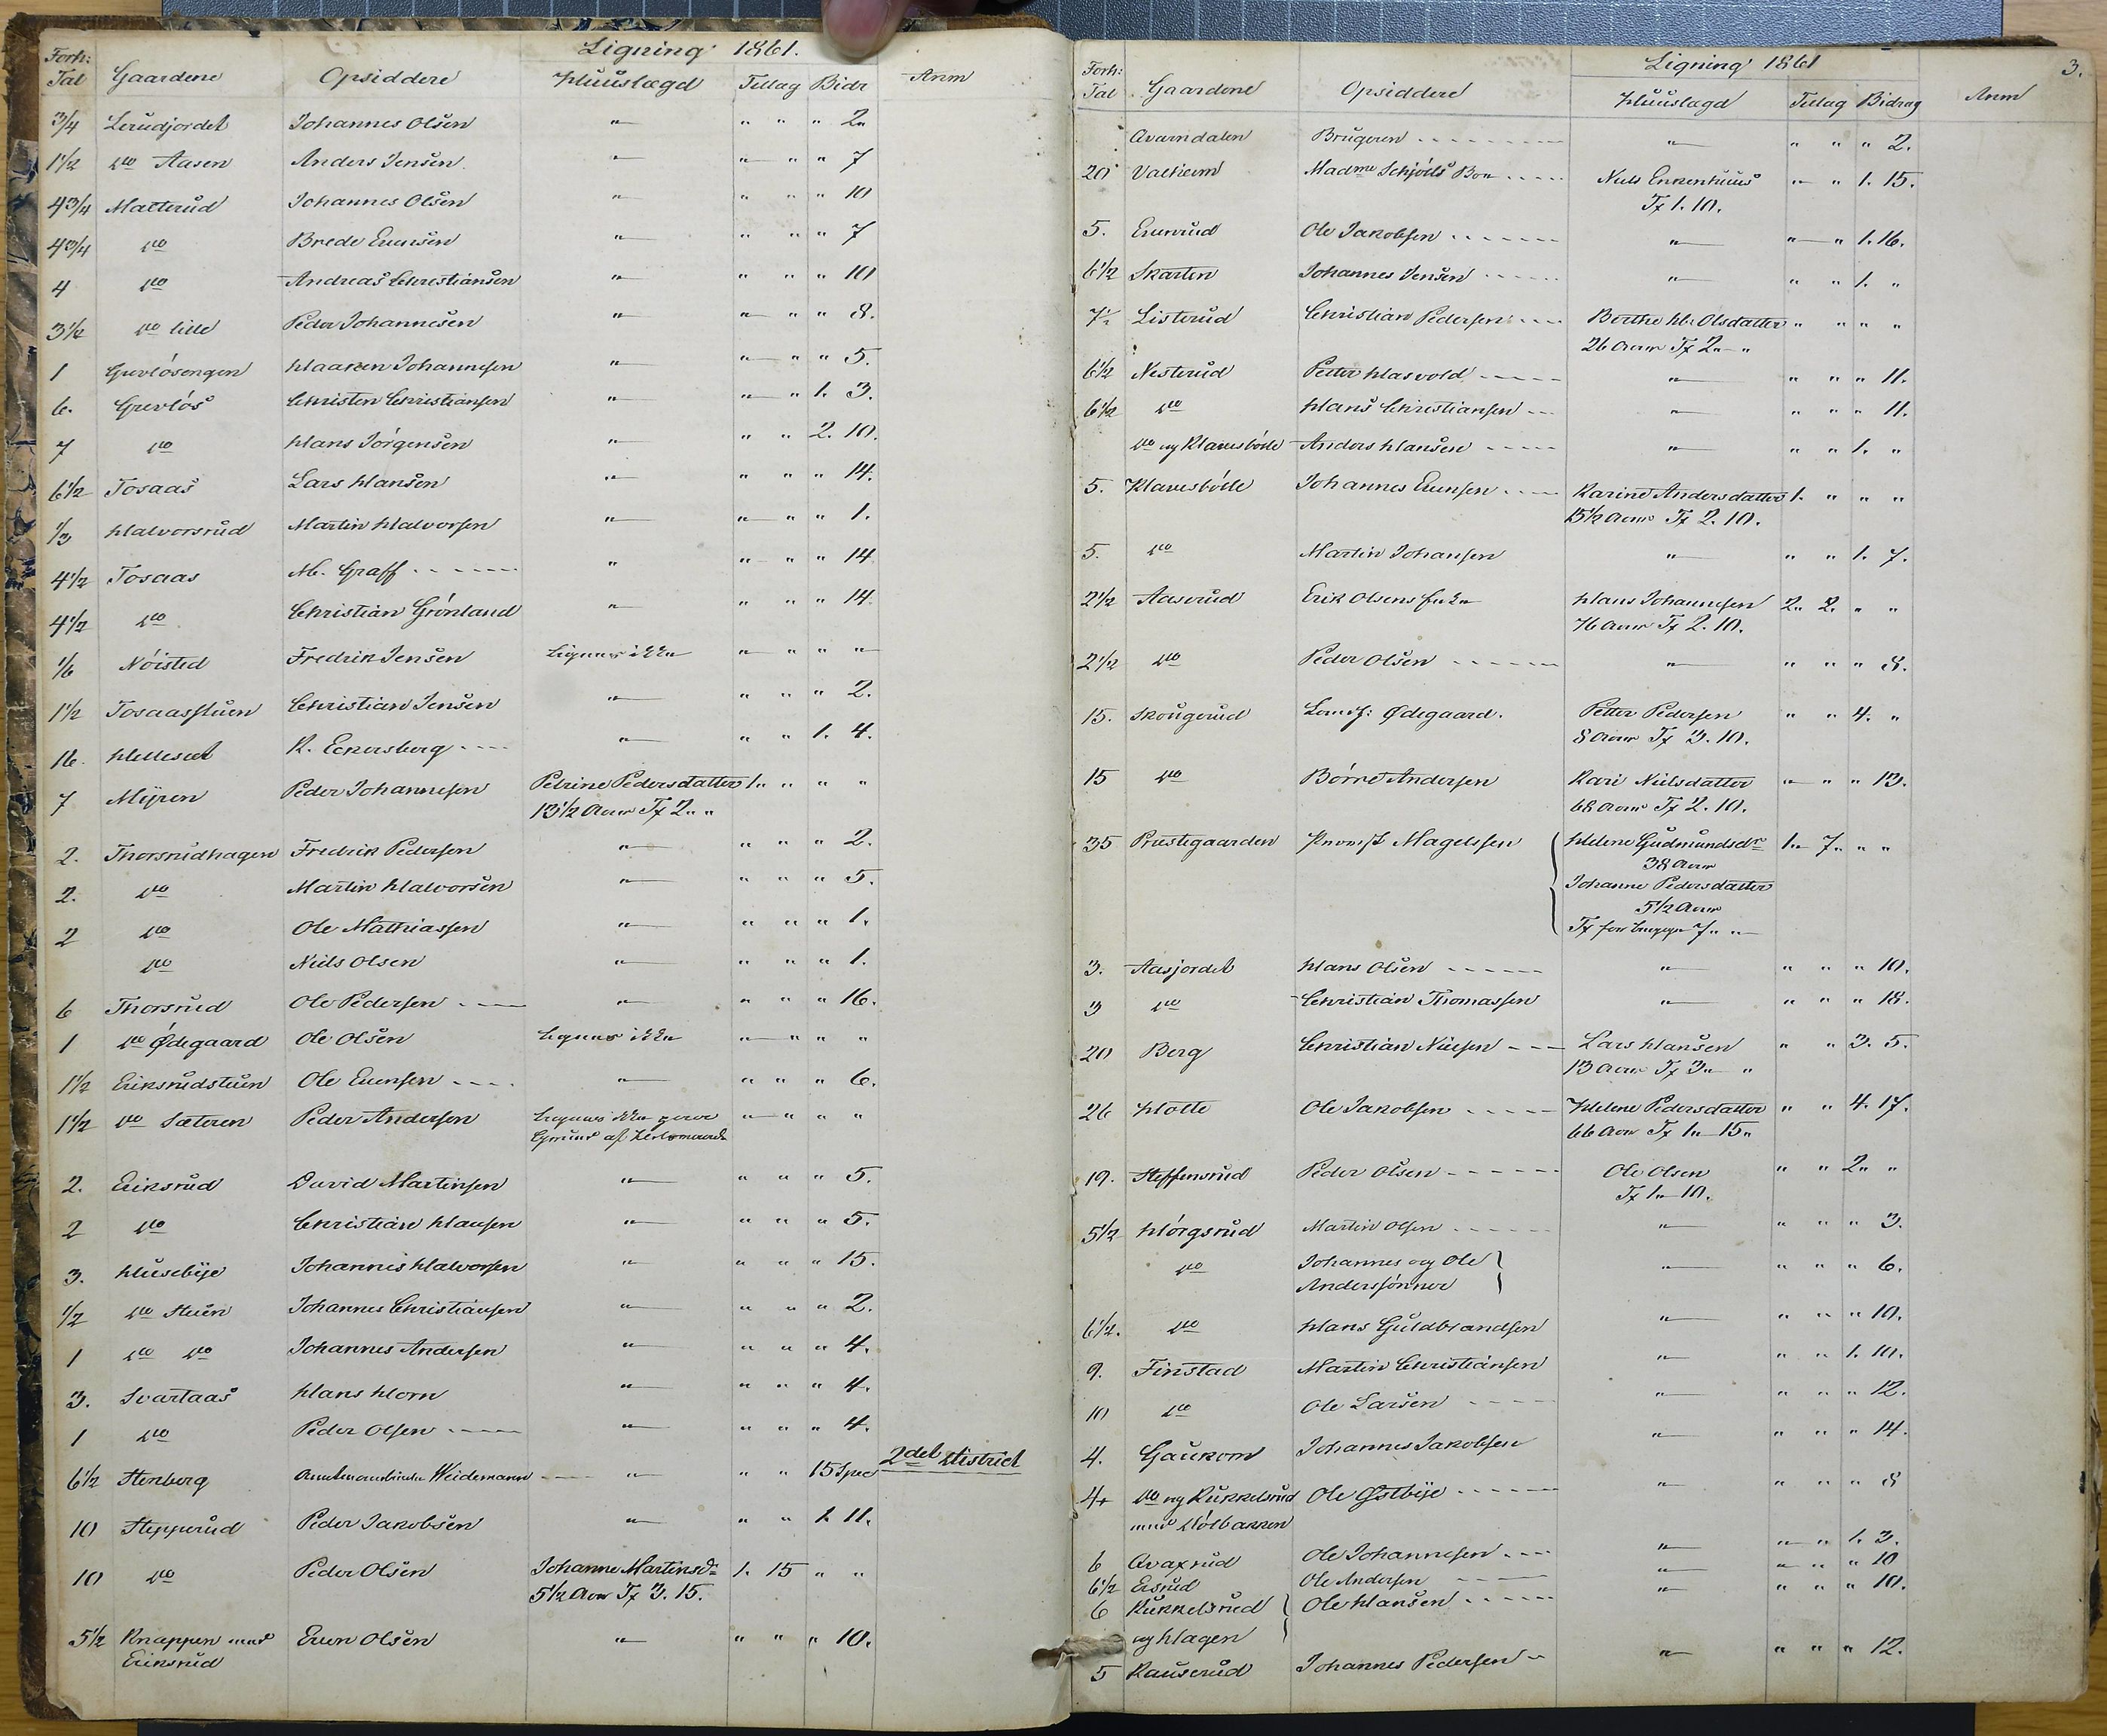 Ligning 1861.
Forh: Tal Gaardene Opsiddere Huuslægd Tillag Bidr Anm
3/4 Lerudjordet Johannes Olsen " " " " 2"
1 1/2 do Aasen Anders Jensen " " " " 7
4 3/4 Matterud Johannes Olsen " " " " 10
4 3/4 do Brede Evensen " " " " 7
4 do Andreas Christiansen " " " " 10
3 1/2 do lille Peder Johannesen " " " " 8.
1 Grevlösengen Haaken Johannesen " " " " 5.
6. Grevlös Christen Christiansen " " " 1. 3.
7 do Hans Jörgensen " " " 2. 10.
6 1/2 Tosaas Lars Hansen " " " " 14.
1/3 Halvorsrud Martin Halvorsen " " " " 1.
4 1/2 Tosaas M. Graff " " " " 14
4 1/2 do Christian Grönland " " " " 14.
1/6 Nöisted Fredrik Jensen Lignes ikke " " " "
1 1/2 Tosaasstuen Christian Jensen " " " " 2.
16. Helleset R. Eckersberg " " " 1. 4.
7 Myren Peder Johannesen Petrine Pedersdatter 1" " " "
13 1/2 Aar Tf 2 " "
2. Thorsrudhagen Fredrik Pedersen " " " " 2.
2. do Martin Halvorsen " " " " 5.
2 do Ole Mathiassen " " " " 1.
do Niels Olsen " " " " 1.
6 Thorsrud Ole Pedersen " " " " 16.
1 do Ødegaard Ole Olsen Lignes ikke " " " "
1 1/2 Eriksrudstuen Ole Evensen " " " " 6.
1 1/2 do Sæteren Peder Andersen Lignes ikke " " " "
2. Eriksrud David Martinsen " " " " 5.
2 do Christian Hansen " " " " 5.
3. Husebye Johannes Halvorsen " " " " 15.
1/2 do Stuen Johannes Christiansen " " " " 2.
1 do do Johannes Andersen " " " " 4.
3. Svartaas Hans Horn " " " " 4.
1 do Peder Olsen " " " " 4.
2det District
6 1/2 Stenberg Weidemann " " " 15 Spec
10 Stepperud Peder Jakobsen " " " 1. 11.
10 do Peder Olsen Johanne Martinsdr 1. 15 " "
5 1/2 Aar Tf 3. 15.
5 1/2 Knappen med Even Olsen " " " " 10.
Eriksrud
3.
Ligning 1861
Forh: Tal Gaardene Opsiddere Huuslægd Tillag Bidrag Anm
Qværndalen Brugeren " " " " 2.
20 Valheim Madme Schjölls Bo Niels Enkenhuus " " 1. 15.
Tf 1. 10.
5. Evenrud Ole Jakobsen " " " 1. 16.
6 1/2 Skarten Johannes Jensen " " " 1. "
7 1/2 Listerud Christian Pedersen Berthe H: Olsdatter " " " "
26 Aar Tf 2 " "
6 1/2 Nesterud Petter Hasvold " " " " 11.
6 1/2 do Hans Christiansen " " " " 11.
do og Klanesbölle Anders Hansen " " " 1. "
5. Klanesbölle Johannes Evensen Karine Andersdatter 1. " " "
15 1/2 Aar Tf 2. 10.
5. do Martin Johansen " " " 1. 7.
2 1/2 Aasrud Erik Olsens Enke Hans Johannesen 2. 2. " "
76 Aar Tf 2. 10.
2 1/2 do Peder Olsen " " " " 8.
15. Skougerud Ødegaard. Petter Pedersen " " 4. "
8 Aar Tf 3. 10.
15 do Börre Andersen Kari Nielsdatter " " " 13.
68 Aar Tf 2. 10.
35 Præstegaarden Provst Magelssen Helene Gudmundsdr 1" 7. " "
38 Aar
Johanne Pedersdatter
5 1/2 Aar
Tf for begge 7 " "
3. Aasjordet Hans Olsen " " " " 10.
3 do Christian Thomassen " " " " 18.
20 Berg Christian Nielsen Lars Hansen " " 3. 5.
13 Aar Tf 3 " "
26 Hotte Ole Jakobsen Helene Pedersdatter " " 4. 17.
66 Aar Tf 1 " 15 "
19. Steffensrud Peder Olsen Ole Olsen " " 2" "
Tf 1 " 10.
5 1/2 Hörgsrud Martin Olsen " " " " 3.
do Johannes og Ole " " " " 6.
Anderssönner
6 1/2. do Hans Guldbrandsen " " " " 10.
9. Finstad Martin Christiansen " " " 1. 10.
10 do Ole Larsen " " " " 12.
4. Gaukom Johannes Jakobsen " " " " 14.
4 do og Kukkelsrud Ole Østbye " " " " 8
med Hölbakken
6 Qvaxrud Ole Johannesen " " " 1. 3.
6 1/2 Ersrud Ole Andersen " " " " 10
6 Kukkelsrud Ole Hansen " " " " 10.
og Hagen
5 Rauserud Johannes Pedersen " " " " 12.